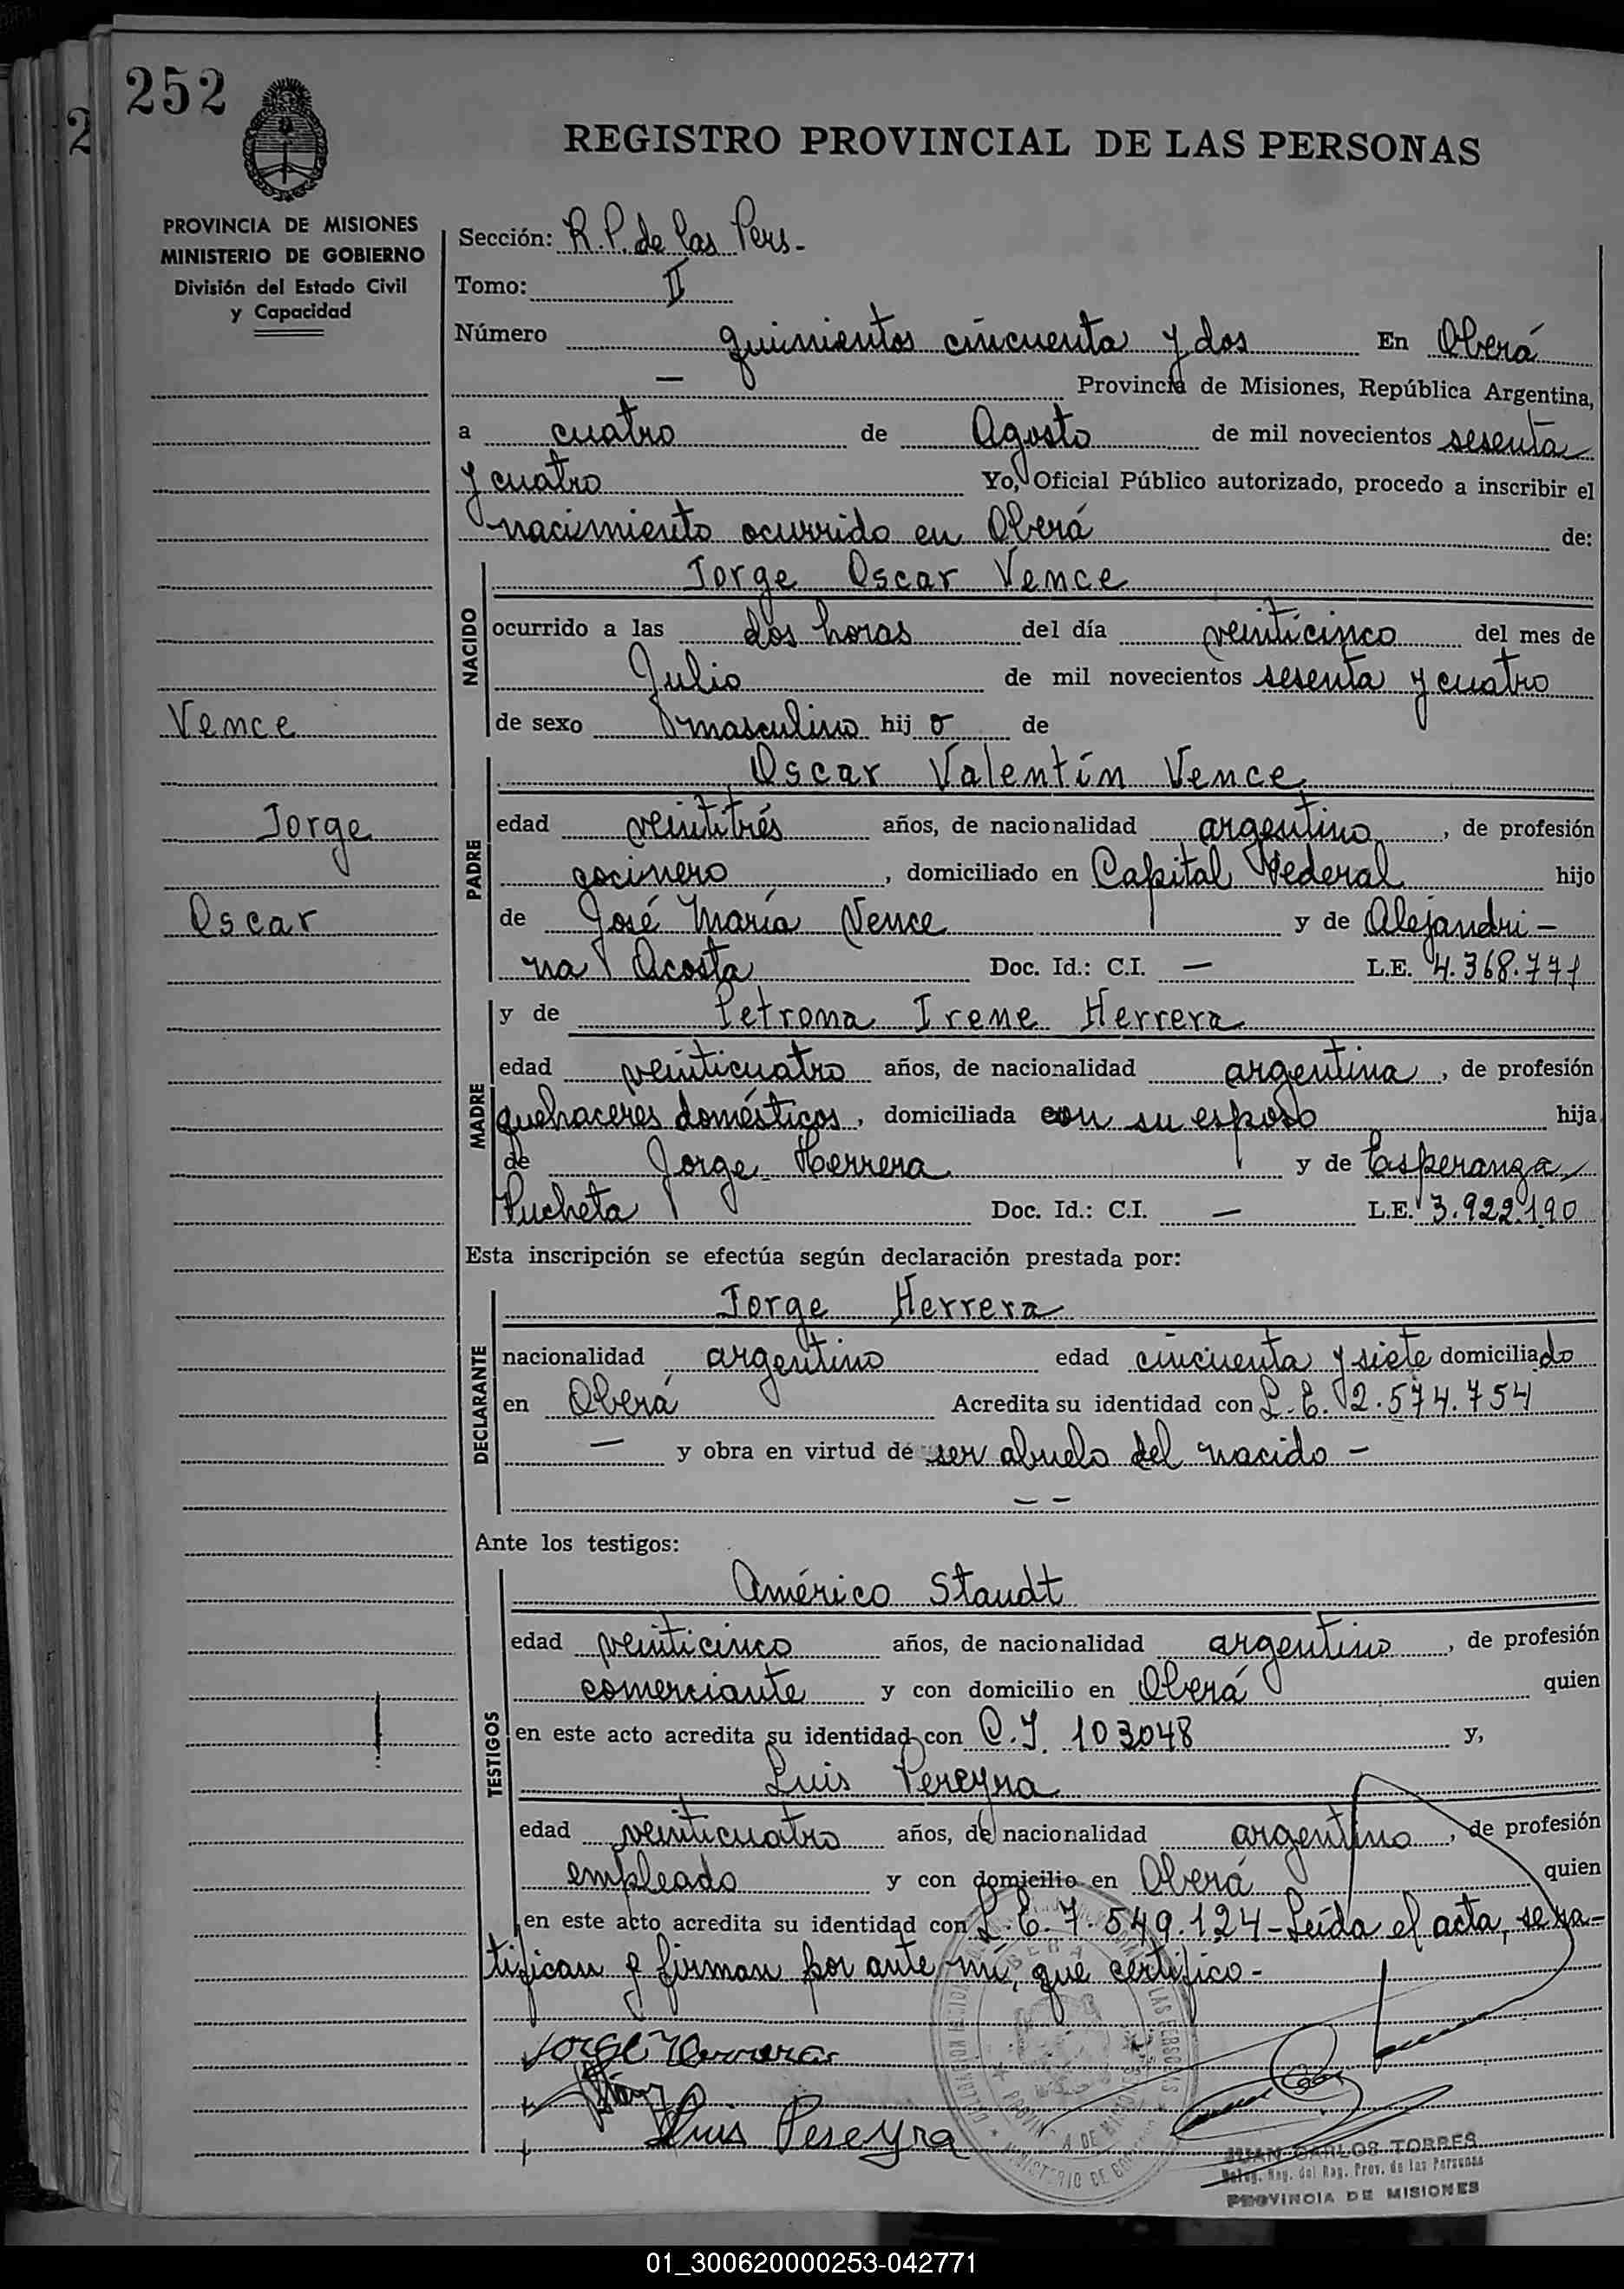 252
REGISTRO PROVINCIAL DE LAS PERSONAS
PROVINCIA DE MISIONES
MINISTERIO DE GOBIERNO
División del Estado Civil
y Capacidad
Sección: R.P. de las Pers-
Tomo: II
Número quinientos cincuenta y dos En Oberá
— Provincia de Misiones, República Argentina,
a cuatro de Agosto de mil novecientos sesenta
y cuatro Yo, Oficial Público autorizado, procedo a inscribir el
nacimiento ocurrido en Oberá de:
NACIDO
Jorge Oscar Vence
ocurrido a las dos horas del día veinticinco del mes de
Julio de mil novecientos sesenta y cuatro
de sexo masculino hijo de
Vence
Jorge
Oscar
PADRE
Oscar Valentín Vence
edad veintitrés años, de nacionalidad argentino, de profesión
cocinero, domiciliado en Capital Federal hijo
de José María Vence y de Alejandri-
na Acosta Doc. Id.: C.I. — L.E. 4.368.771
MADRE
y de Petrona Irene Herrera
edad veinticuatro años, de nacionalidad argentina, de profesión
quehaceres domésticos, domiciliada con su esposo hija
de Jorge Herrera y de Esperanza
Pucheta Doc. Id.: C.I. — L.E. 3.922.190
Esta inscripción se efectúa según declaración prestada por:
DECLARANTE
Jorge Herrera
nacionalidad argentino edad cincuenta y siete domiciliado
en Oberá Acredita su identidad con L.E. 2.574.754
— y obra en virtud de ser abuelo del nacido -
— —
Ante los testigos:
TESTIGOS
Américo Staudt
edad veinticinco años, de nacionalidad argentino, de profesión
comerciante y con domicilio en Oberá quien
en este acto acredita su identidad con C.I. 103048 y,
Luis Pereyra
edad veinticuatro años, de nacionalidad argentino, de profesión
empleado y con domicilio en Oberá quien
en este acto acredita su identidad con L.E. 7.549.124 - Leída el acta, se ra-
tifican y firman por ante mí, que certifico -
Jorge Herrera
Luis Pereyra
JUAN CARLOS TORRES
Deleg. Reg. del Reg. Prov. de las Personas
PROVINCIA DE MISIONES
01_300620000253-042771